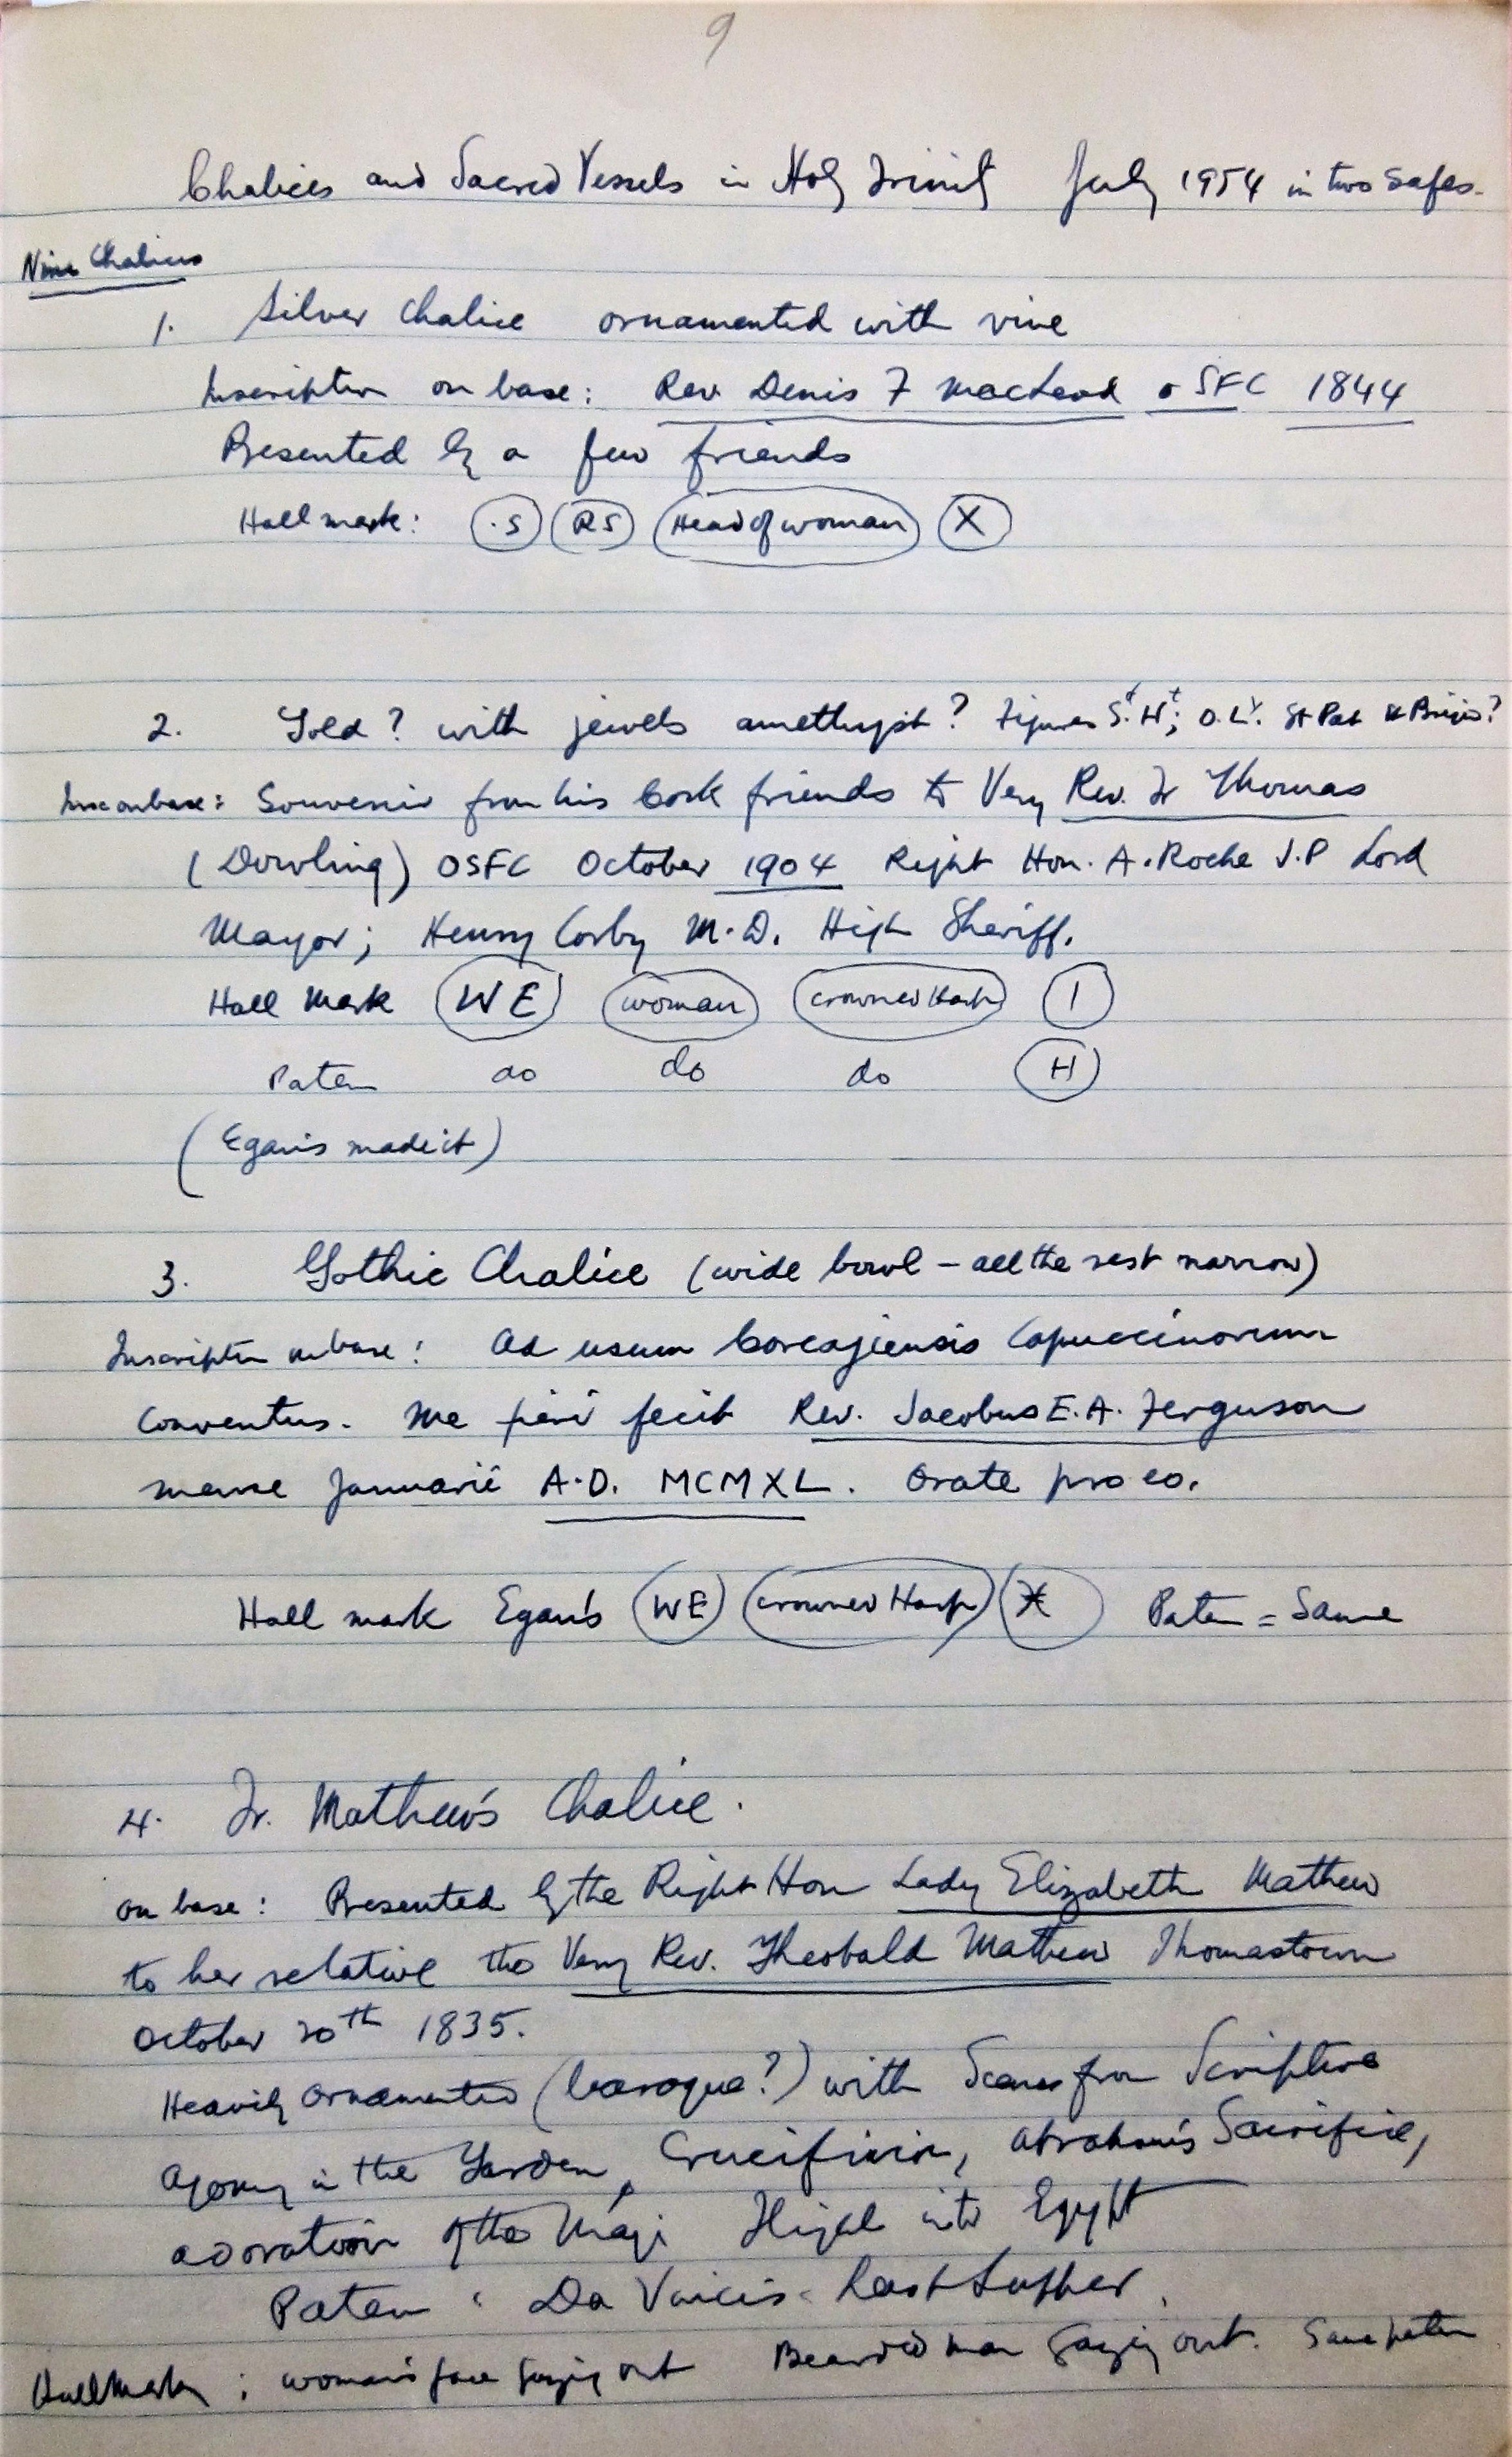 9
Chalices and Sacred Vessels in Holy Trinity July 1954 in two safes.
Nine Chalices
1. Silver Chalice ornamented with vine
Inscription on base: Rev. Denis F MacLeod OSFC 1844
Presented by a few friends
Hall mark: .S RS Head of woman X
2. Gold? with jewels amethyst? Figures S.t H.t; O.L.y St Pat St Brigid?
Insc on base: Souvenir from his Cork friends to Very Rev. Fr Thomas
(Dowling) OSFC October 1904 Right Hon. A. Roche J.P Lord
Mayor; Henry Corby M.D. High Sheriff.
Hall Mark WE woman crowned Harp I
Paten do do do H
(Egan's made it)
3. Gothic Chalice (wide bowl - all the rest narrow)
Inscription on base: Ad usum Corcagiensis Capuccinorum
Conventus. Me fieri fecit Rev. Jacobus E. A. Ferguson
mense Januarii A.D. MCMXL. Orate pro eo.
Hall mark Egan's WE crowned Harp Paten = Same
4. Fr. Mathew's Chalice.
on base: Presented by the Right Hon Lady Elizabeth Mathew
to her relative the Very Rev. Theobald Mathew Thomastown
October 20th 1835.
Heavily ornamented (baroque?) with Scenes from Scripture
Agony in the Garden, Crucifixion, Abraham's Sacrifice,
adoration of the Magi Flight into Egypt
Paten : Da Vinci's Last Supper.
Hallmark : woman's face gazing out Bearded man gazing out. Same paten